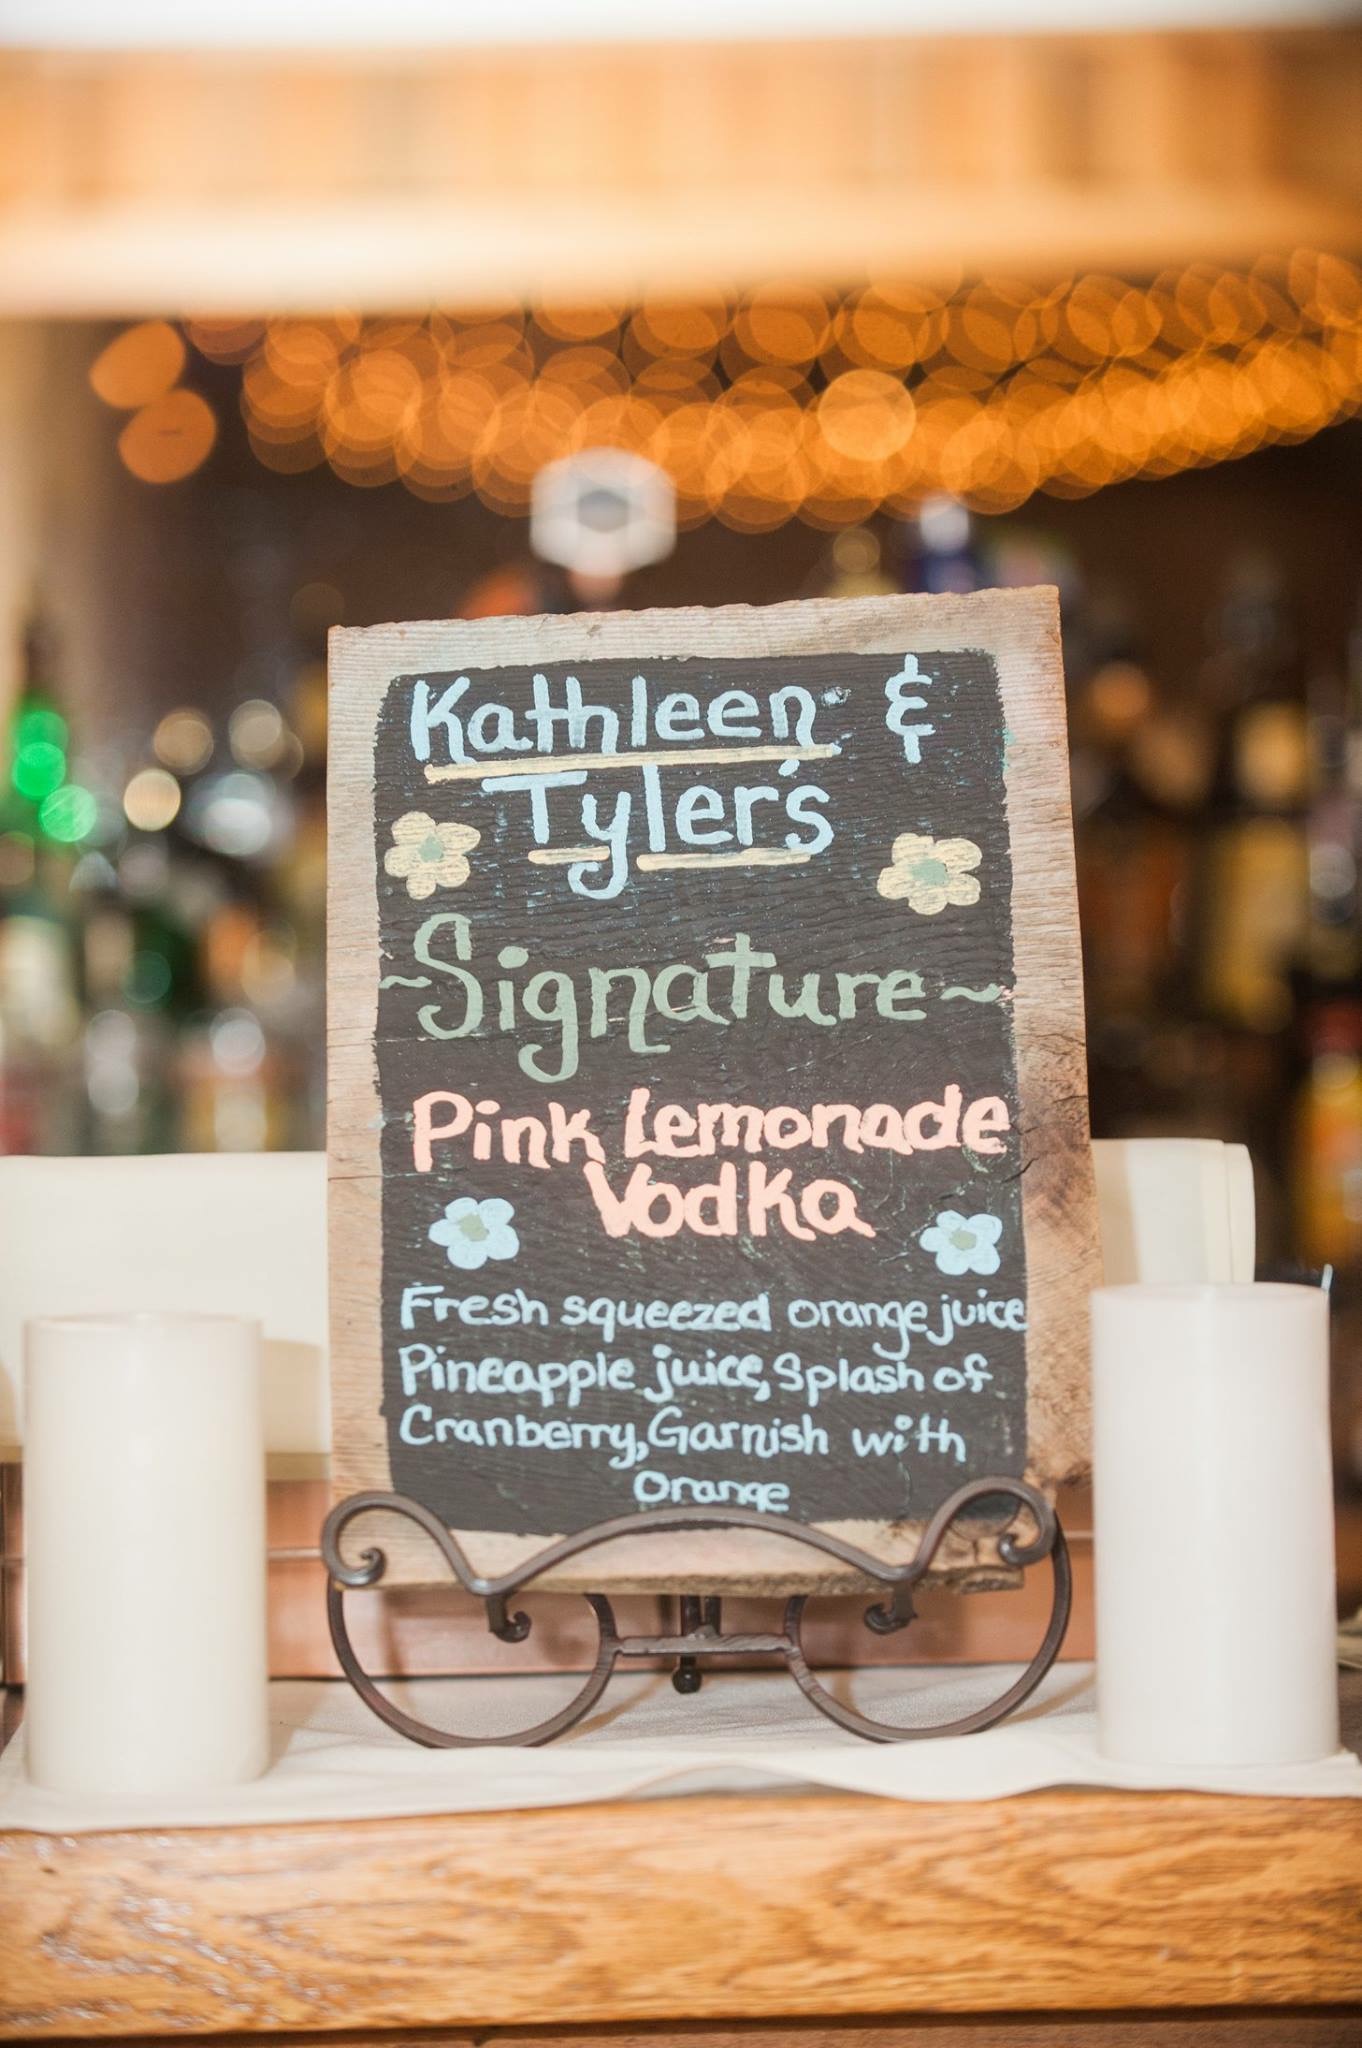 Kathleen &
Tyler's
~Signature~
Pink Lemonade
Vodka
Fresh squeezed orange juice
Pineapple juice, Splash of
Cranberry, Garnish with
Orange